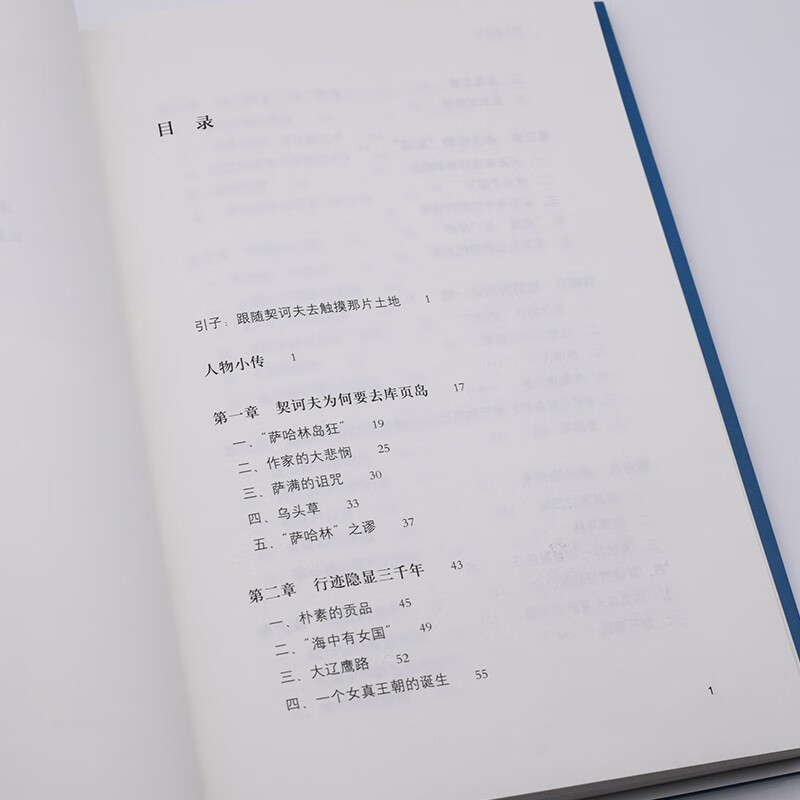 目 录
引子：跟随契诃夫去触摸那片土地 1
人物小传 1
第一章 契诃夫为何要去库页岛 17
一、“萨哈林岛狂” 19
二、作家的大悲悯 25
三、萨满的诅咒 30
四、乌头草 33
五、“萨哈林”之谬 37
第二章 行迹隐显三千年 43
一、朴素的贡品 45
二、“海中有女国” 49
三、大辽鹰路 52
四、一个女真王朝的诞生 55
1